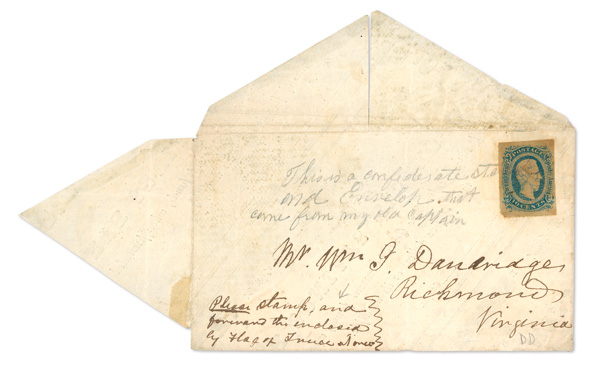 This is a confiderate sta
and Envelop that
came from my old Captain
POSTAGE
TEN CENTS
Mr. Wm J. Dandridge
Richmond
Virginia
Please stamp, and
forward the enclosed
by Flag of Truce at once
DD